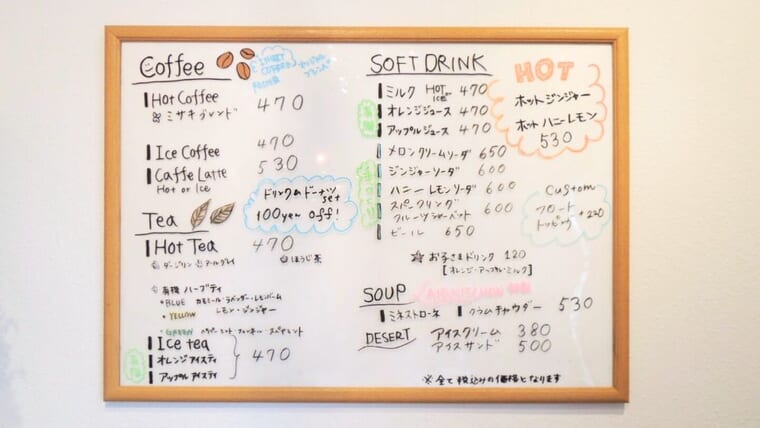 Coffee
Hot Coffee 470
ミサキブレンド
Ice Coffee 470
Caffe Latte 530
Hot or Ice
ドリンク&ドーナツ
set
100yen off!
Tea
Hot Tea 470
ダージリン アールグレイ ほうじ茶
有機 ハーブティ
・BLUE カモミール・ラベンダー・レモンバーム
・YELLOW レモン・ジンジャー
・GREEN ペパーミント・フェンネル・スペアミント
Ice tea
オレンジアイスティ 470
アップルアイスティ
SOFT DRINK
ミルク HOT or ICE 470
オレンジジュース 470
アップルジュース 470
メロンクリームソーダ 650
ジンジャーソーダ 600
ハニーレモンソーダ 600
スパークリング
フルーツシャーベット 600
ビール 650
お子さまドリンク 120
[オレンジ・アップル・ミルク]
HOT
ホットジンジャー
ホットハニーレモン
530
Custom
フロート
トッピング +220
SOUP
ミネストローネ クラムチャウダー 530
DESERT
アイスクリーム 380
アイスサンド 500
※全て税込みの価格となります